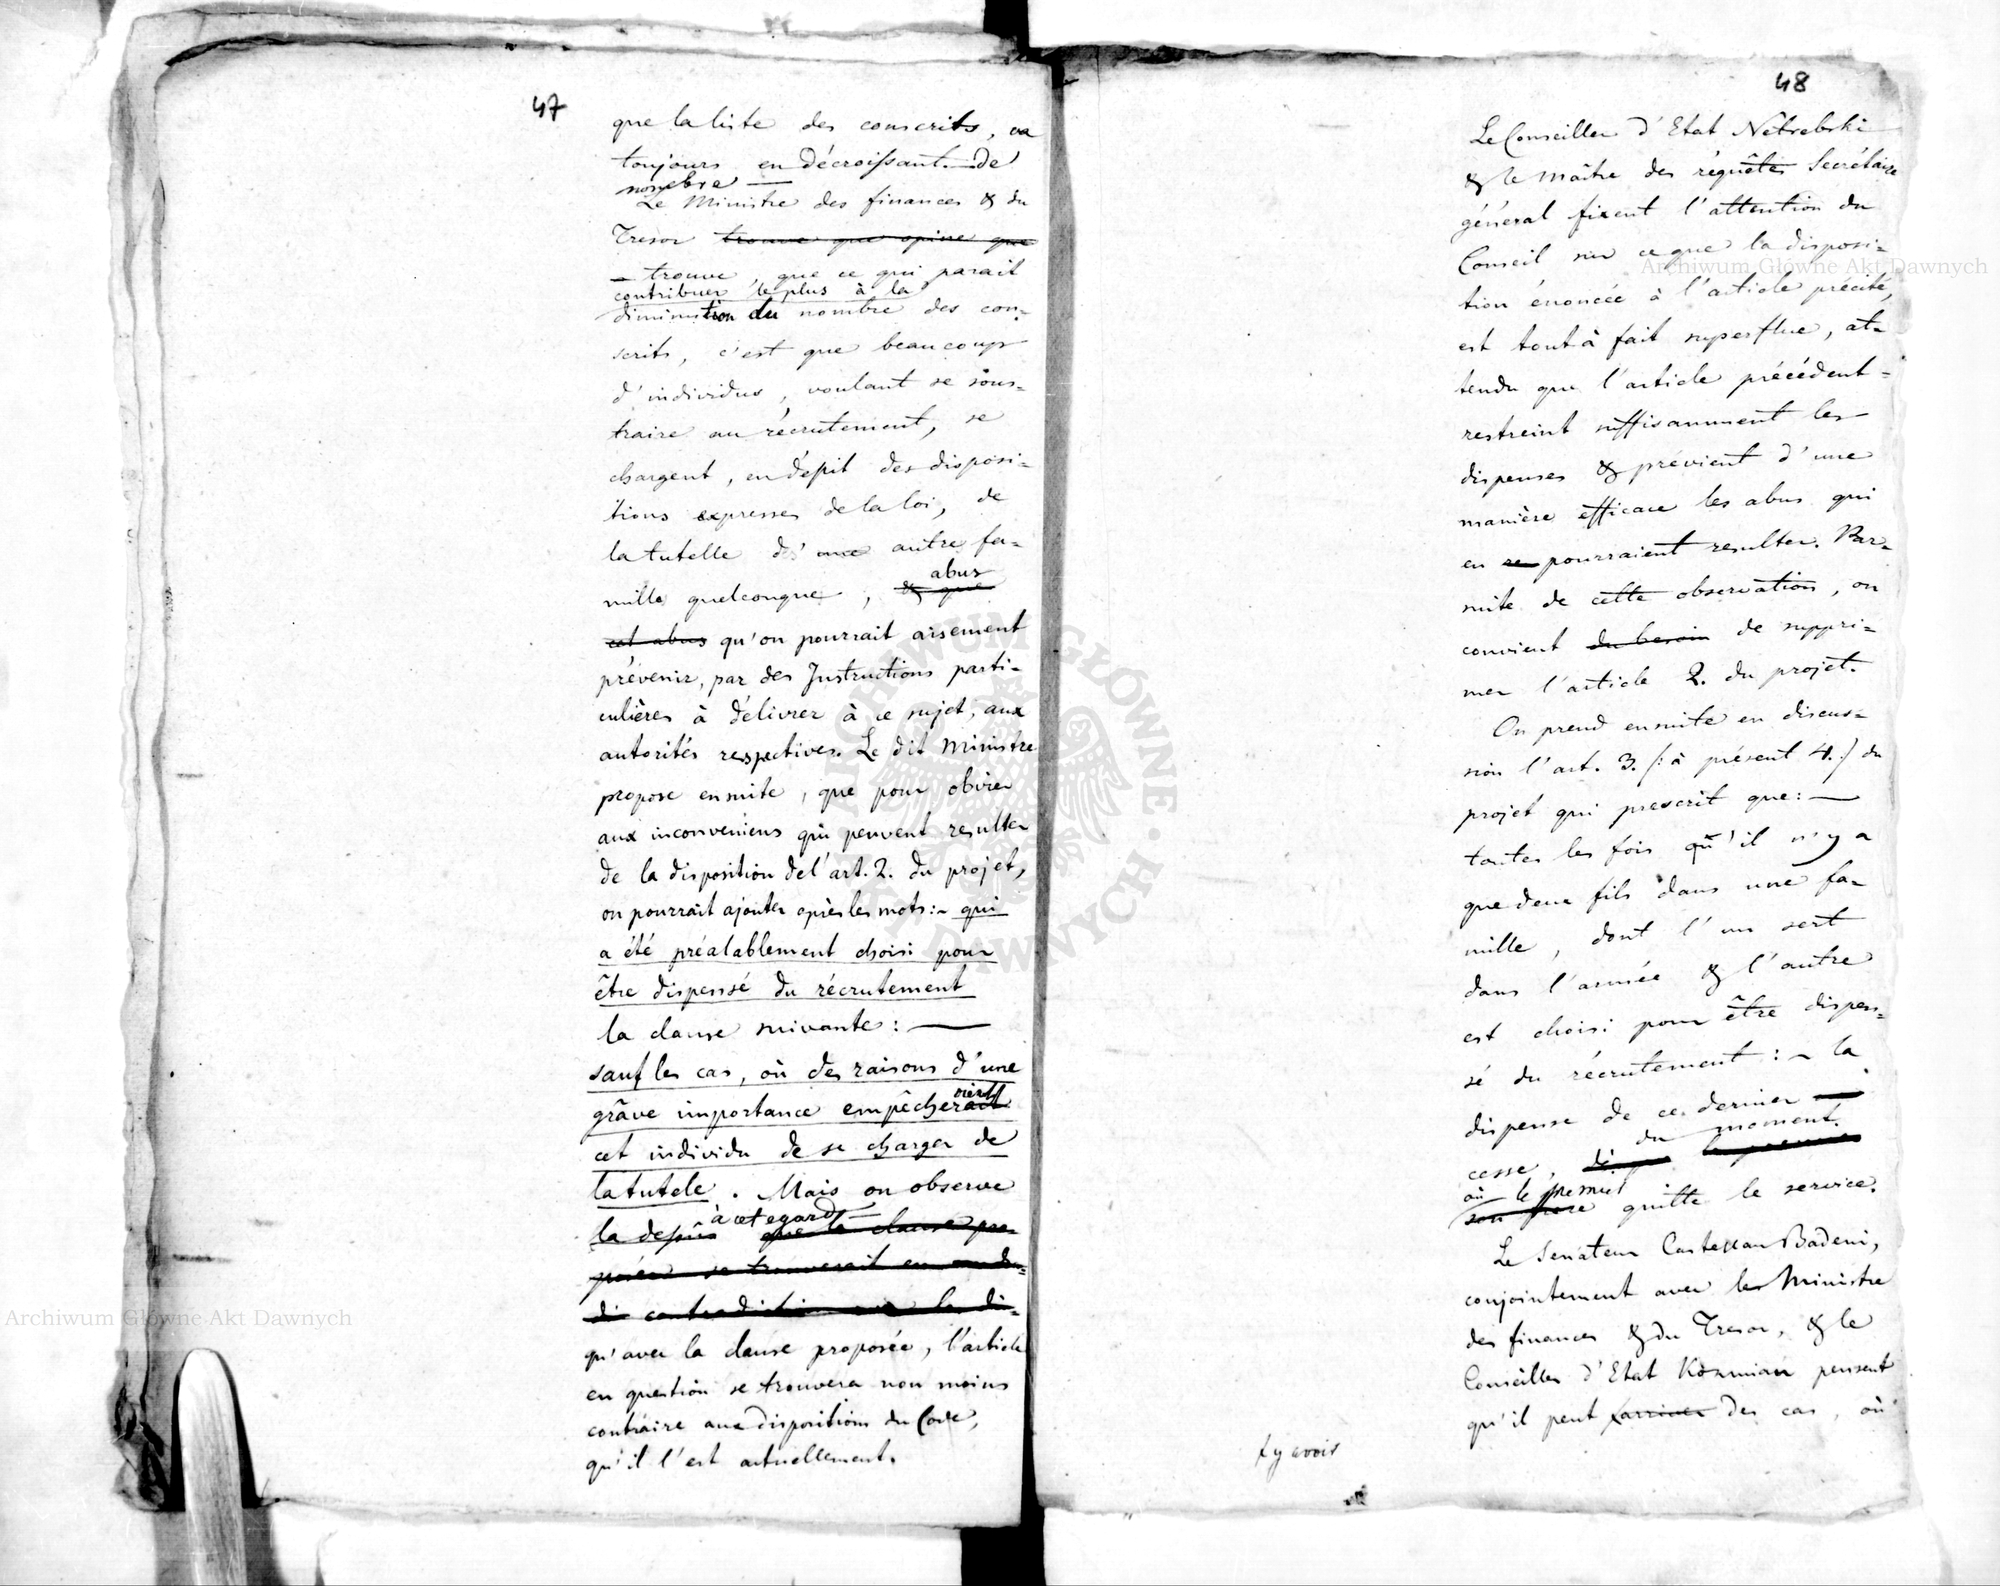 47
que la liste des conscrits, va
toujours en décroissant. de
nombre —
Le Ministre des finances & du
Tresor trouve que opine que
– trouve, que ce qui parait
contribuer le plus à la
diminution du nombre des con-
scrits, c'est que beaucoup
d'individus, voulant se sous=
traire au récrutement, se
chargent, en dépit des disposi-
tions expresses de la loi, de
la tutelle d'une autre fa-
mille quelconque, & que
abus
cet abus qu'on pourrait aisement
prévenir, par des Instructions parti-
culières à délivrer à ce sujet, aux
autorités respectives. Le dit Ministre
propose ensuite, que pour obvier
aux inconveniens qui peuvent resulter
de la disposition de l'art. 2. du projet,
on pourrait ajouter après les mots:- qui
a été préalablement choisi pour
être dispensé du récrutement
la clause suivante: —
sauf les cas, où des raisons d'une
grâve importance empêcherait
oient
cet individu de se charger de
la tutele. Mais on observe
à cet egard
la depûs que la clause pro-
posée se trouverait en
contradiction la di-
qu'avec la clause proposée, l'article
en question se trouvera non moins
contraire aux dispositions du Code,
qu'il l'est actuellement.
48
Le Conseiller d'Etat Netrebski
& le Maître des réquêtes Secrétaire
général fixent l'attention du
Conseil sur ce que la disposi=
tion énoncée à l'article précité,
est tout à fait superflue, at-
tendu que l'article précédent-
restreint suffisamment les
dispenses & prévient d'une
manière efficace les abus qui
en se pourraient resulter. Par-
suite de cette observation, on
convient du besoin de suppri=
mer l'article 2. du projet.
On prend ensuite en discus=
sion l'art. 3. /: à présent 4. :/ du
projet qui prescrit que: —
toutes les fois qu'il n'y a
que deux fils dans une fa-
mille, dont l'un sert
dans l'armée & l'autre
est choisi pour être dispen=
sé du récrutement: – la
dispense de ce dernier —
du moment.
cesse, le premier
où le premier
son frere quitte le service.
Le Senateur Castellan Badeni,
conjointement avec le Ministre
des finances & du Tresor, & le
Conseiller d'Etat Kozmian pensent
qu'il peut arriver des cas, où
+ y avoir
Archiwum Główne Akt Dawnych
Archiwum Główne Akt Dawnych
ARCHIWUM GŁÓWNE · AKT DAWNYCH ·